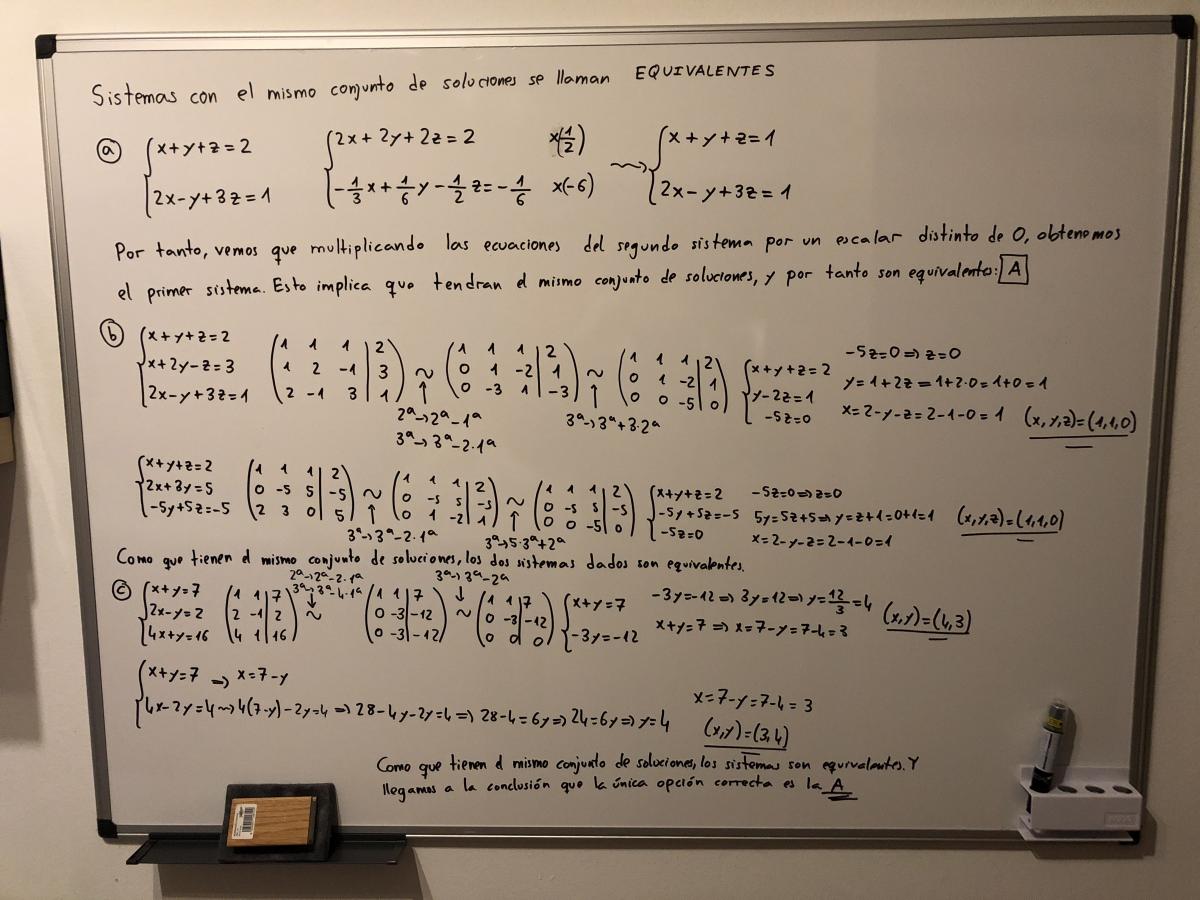 Sistemas con el mismo conjunto de soluciones se llaman EQUIVALENTES
a) { x+y+z=2 ; 2x-y+3z=1 { 2x+2y+2z=2 x(1/2) ; -1/3x+1/6y-1/2z=-1/6 x(-6) ⇝ { x+y+z=1 ; 2x-y+3z=1
Por tanto, vemos que multiplicando las ecuaciones del segundo sistema por un escalar distinto de 0, obtenemos
el primer sistema. Esto implica que tendran el mismo conjunto de soluciones, y por tanto son equivalentes: A
b) { x+y+z=2 ; x+2y-z=3 ; 2x-y+3z=1 (1 1 1 | 2 ; 1 2 -1 | 3 ; 2 -1 3 | 1) ~ (1 1 1 | 2 ; 0 1 -2 | 1 ; 0 -3 1 | -3) ~ (1 1 1 | 2 ; 0 1 -2 | 1 ; 0 0 -5 | 0) { x+y+z=2 ; y-2z=1 ; -5z=0
-5z=0 ⇒ z=0
y=1+2z=1+2·0=1+0=1
x=2-y-z=2-1-0=1 (x,y,z)=(1,1,0)
↑ 2ª→2ª-1ª
3ª→3ª-2·1ª
↑ 3ª→3ª+3·2ª
{ x+y+z=2 ; 2x+3y=5 ; -5y+5z=-5 (1 1 1 | 2 ; 0 -5 5 | -5 ; 2 3 0 | 5) ~ (1 1 1 | 2 ; 0 -5 5 | -5 ; 0 1 -2 | 1) ~ (1 1 1 | 2 ; 0 -5 5 | -5 ; 0 0 -5 | 0) { x+y+z=2 ; -5y+5z=-5 ; -5z=0
-5z=0 ⇒ z=0
5y=5z+5 ⇒ y=z+1=0+1=1 (x,y,z)=(1,1,0)
x=2-y-z=2-1-0=1
↑ 3ª→3ª-2·1ª
↑ 3ª→5·3ª+2ª
Como que tienen el mismo conjunto de soluciones, los dos sistemas dados son equivalentes.
2ª→2ª-2·1ª
3ª→3ª-4·1ª ↓
3ª→3ª-2ª ↓
c) { x+y=7 ; 2x-y=2 ; 4x+y=16 (1 1 | 7 ; 2 -1 | 2 ; 4 1 | 16) ~ (1 1 | 7 ; 0 -3 | -12 ; 0 -3 | -12) ~ (1 1 | 7 ; 0 -3 | -12 ; 0 0 | 0) { x+y=7 ; -3y=-12
-3y=-12 ⇒ 3y=12 ⇒ y=12/3=4
x+y=7 ⇒ x=7-y=7-4=3 (x,y)=(4,3)
{ x+y=7 → x=7-y
4x-2y=4 ⇝ 4(7-y)-2y=4 ⇒ 28-4y-2y=4 ⇒ 28-4=6y ⇒ 24=6y ⇒ y=4
x=7-y=7-4=3
(x,y)=(3,4)
Como que tienen el mismo conjunto de soluciones, los sistemas son equivalentes. Y
llegamos a la conclusión que la única opción correcta es la A